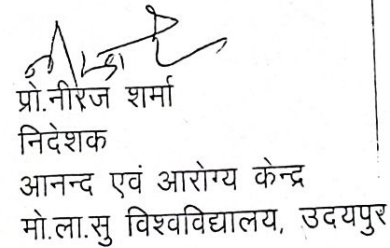 प्रो.नीरज शर्मा
निदेशक
आनन्द एवं आरोग्य केन्द्र
मो.ला.सु विश्वविद्यालय, उदयपुर